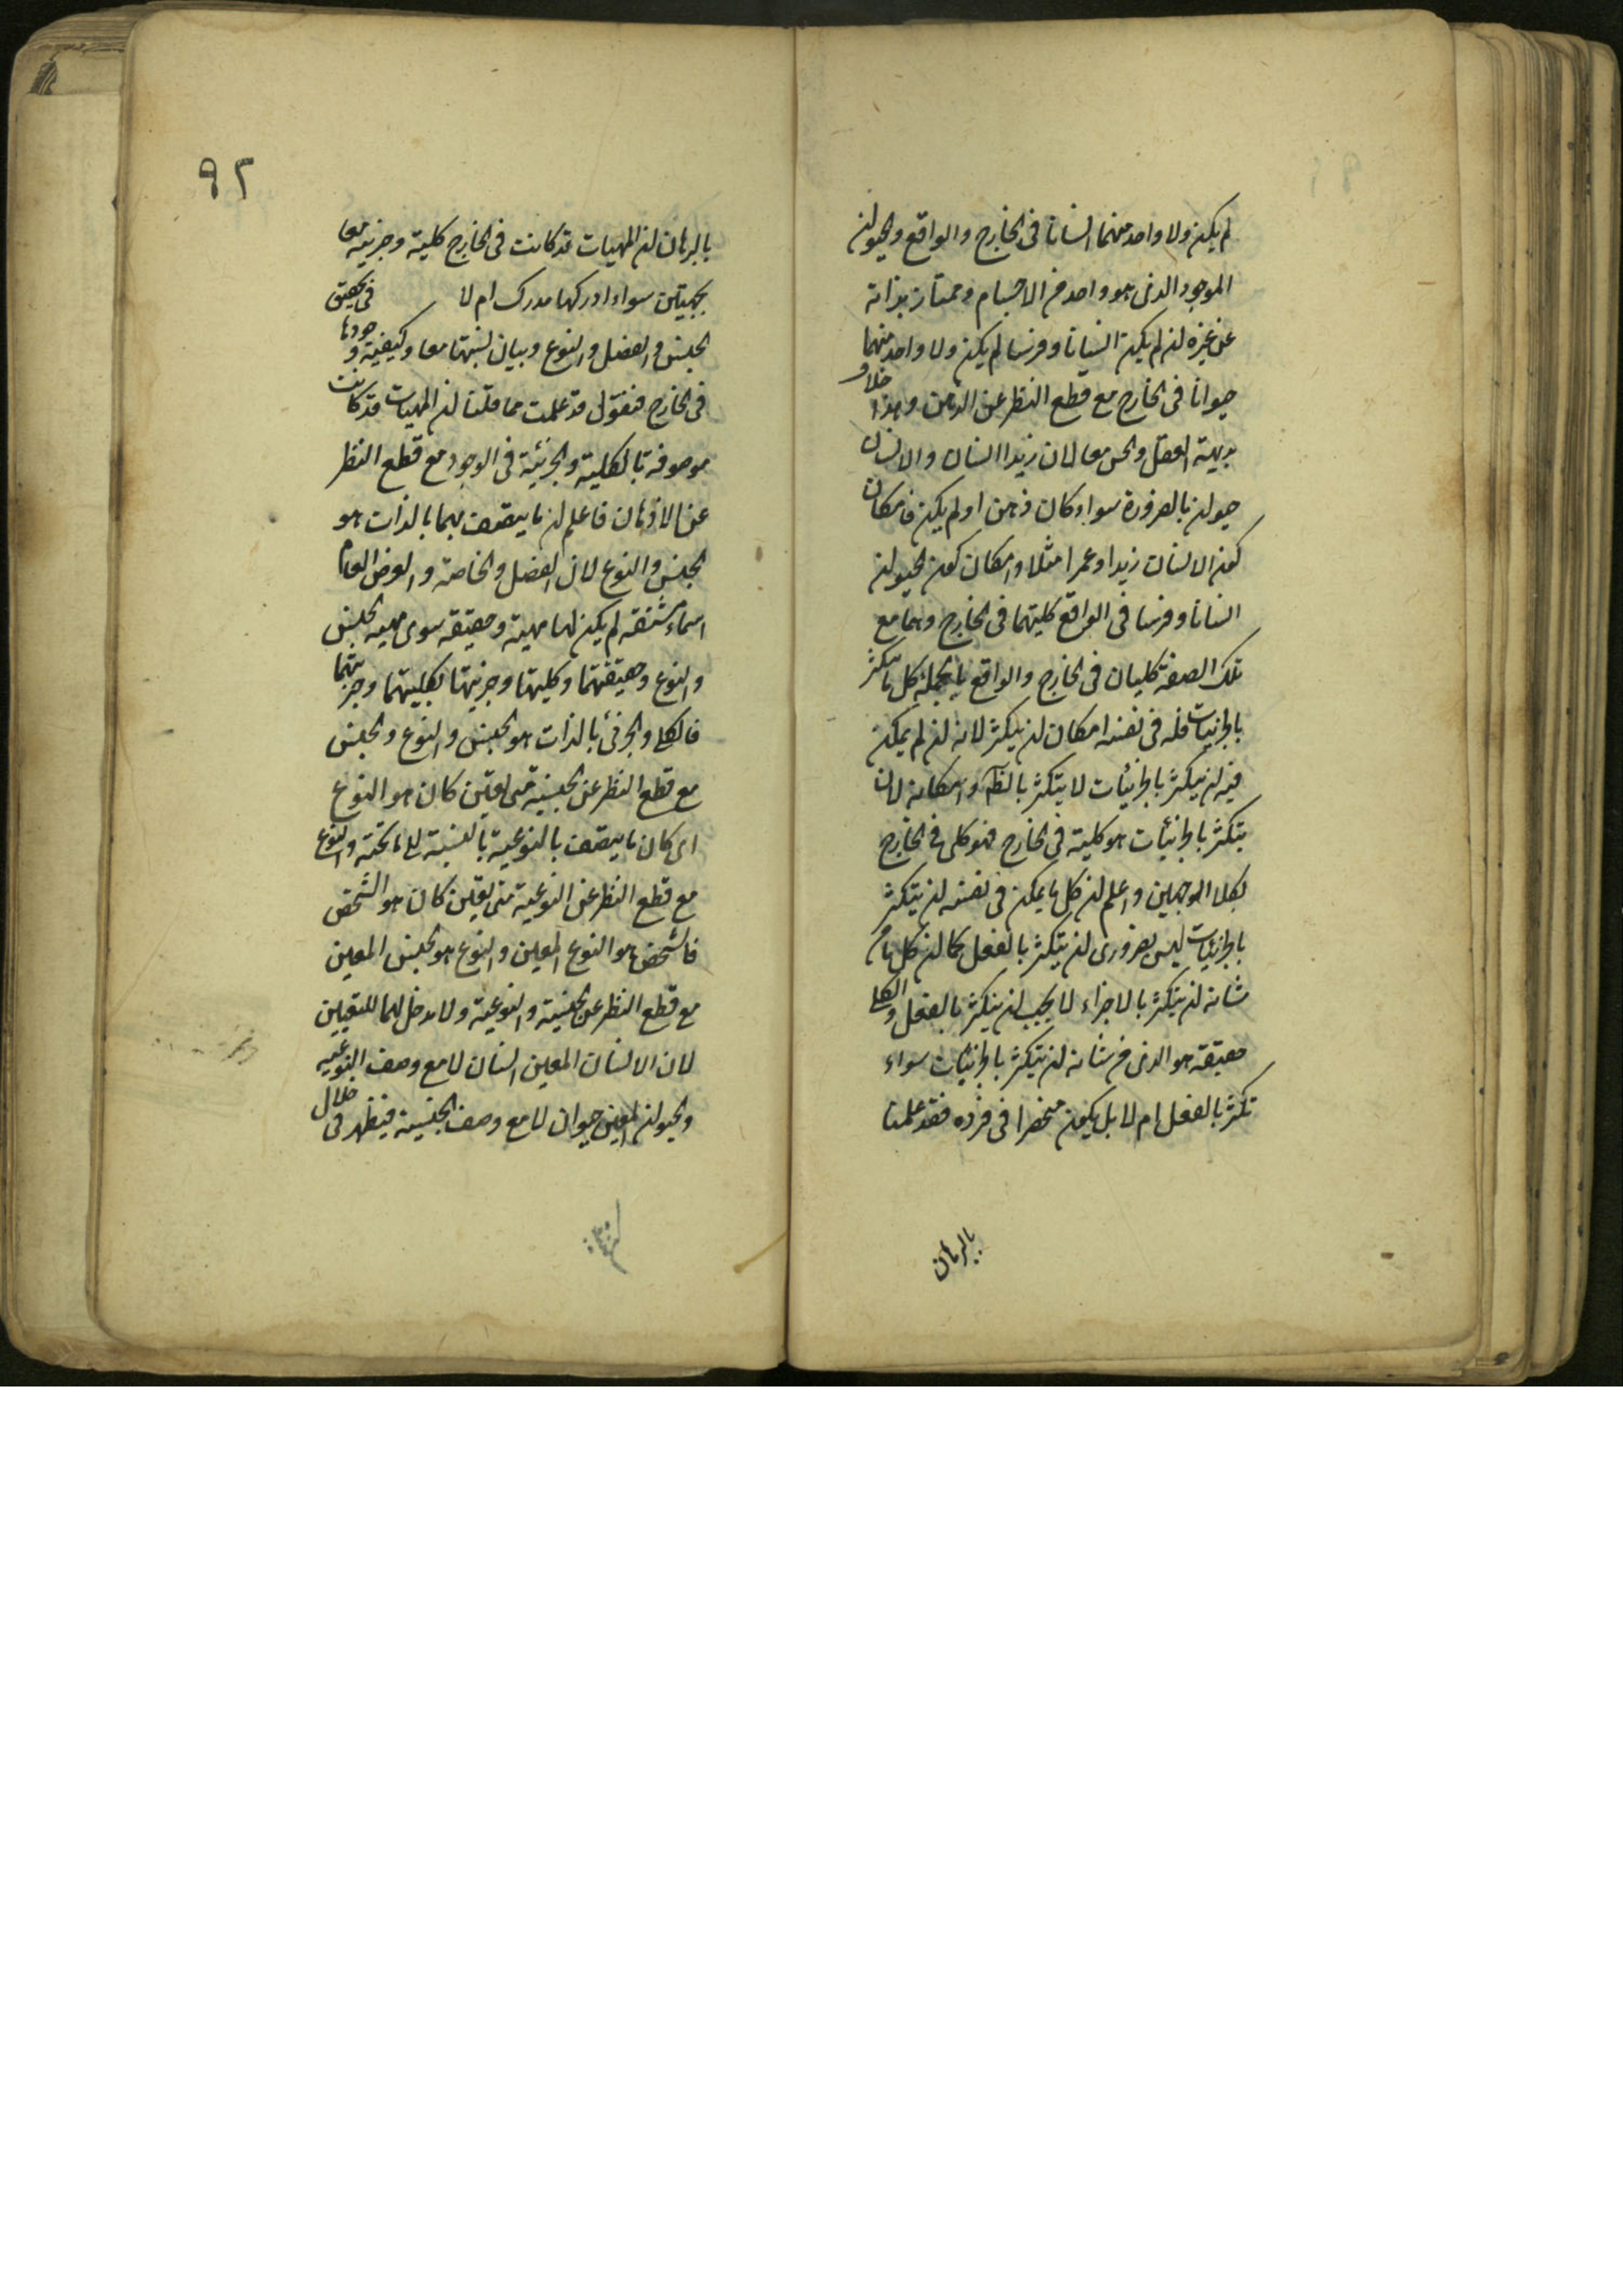 لم يكن ولا واحد منهما انسانا فى الخارج والواقع والحيوان
الموجود الذى هو واحد من الاجسام وممتاز بذاته
عن غيره ان لم يكن انسانا وفرسا لم يكن ولا واحد منهما
حيوانا فى الخارج مع قطع النظر عن الذهن وهذا خلاف
بديهة العقل والحس معا لان زيدا انسان والانسان
حيوان بالضرورة سواء كان ذهن او لم يكن فامكان
كون الانسان زيدا وعمرا مثلا وامكان كون الحيوان
انسانا وفرسا فى الواقع كليتهما فى الخارج وهما مع
تلك الصفة كليان فى الخارج والواقع بالجملة كل ما يتكثر
بالجزئيات فله فى نفسه امكان ان يتكثر لانه ان لم يمكن
فيه ان يتكثر بالجزئيات لا يتكثر بالظ وامكانه لان
يتكثر بالجزئيات هو كليته فى الخارج فهو كلى فى الخارج
بكلا الوجهين واعلم ان كل ما يمكن فى نفسه ان يتكثر
بالجزئيات ليس بضرورى ان يتكثر بالفعل كما ان كل ما من
شانه ان يتكثر بالاجزاء لا يجب ان يتكثر بالفعل والكلى
حقيقة هو الذى من شانه ان يتكثر بالجزئيات سواء
تكثر بالفعل ام لا بل يكون منحصرا فى فرده فقد علمنا
بالبرهان
٩٢
بالبرهان ان المهيات قد كانت فى الخارج كلية وجزئية معا
بجهتين سواء ادركها مدرك ام لا فى تحقيق
الجنس والفصل والنوع وبيان نسبتها معا وكيفية وجودها
فى الخارج فنقول قد علمت مما قلنا ان المهيات قد كانت
موصوفة بالكلية والجزئية فى الوجود مع قطع النظر
عن الاذهان فاعلم ان ما يتصف بهما بالذات هو
الجنس والنوع لان الفصل والخاصة والعرض العام
اسماء مشتقة لم يكن لها مهية وحقيقة سوى مهية الجنس
والنوع وحقيقتهما وكليتها وجزئيتها بكليتهما وجزئيتهما
فالكلى والجزئى بالذات هو الجنس والنوع والجنس
مع قطع النظر عن الجنسية متى تعين كان هو النوع
اى كان ما يتصف بالنوعية بالنسبة الى ما تحته والنوع
مع قطع النظر عن النوعية متى تعين كان هو الشخص
فالشخص هو النوع المعين والنوع هو الجنس المعين
مع قطع النظر عن الجنسية والنوعية ولا مدخل لهما للتعيين
لان الانسان المعين انسان لا مع وصف النوعية
والحيوان المعين حيوان لا مع وصف الجنسية فيظهر فى خلال